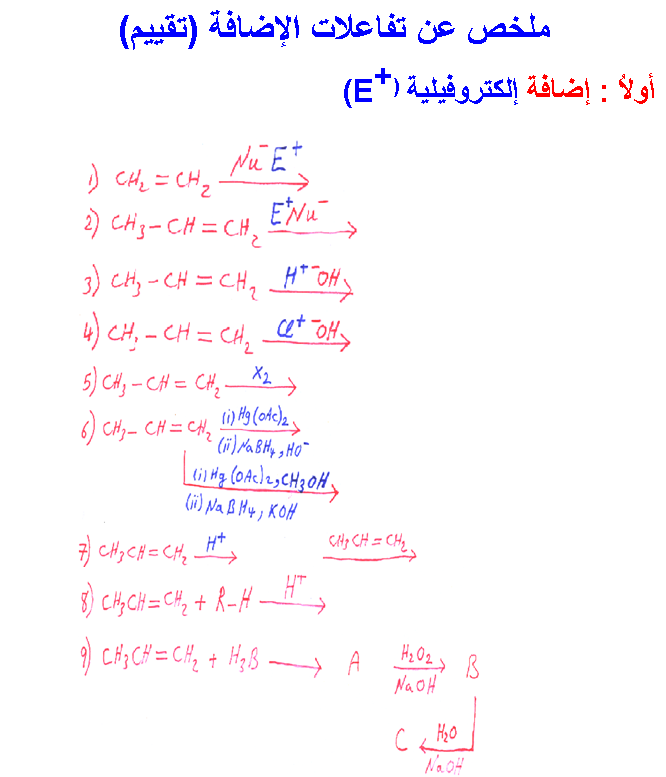 ملخص عن تفاعلات الإضافة (تقييم)
أولاً : إضافة إلكتروفيلية (E⁺)
1) CH₂ = CH₂ Nu⁻ E⁺ ⟶
2) CH₃ – CH = CH₂ E⁺Nu⁻ ⟶
3) CH₃ – CH = CH₂ H⁺ ⁻OH ⟶
4) CH₃ – CH = CH₂ Cl⁺ ⁻OH ⟶
5) CH₃ – CH = CH₂ X₂ ⟶
6) CH₃ – CH = CH₂ (i) Hg(OAc)₂ ⟶
(ii) NaBH₄, HO⁻
(i) Hg(OAc)₂, CH₃OH ⟶
(ii) NaBH₄, KOH
7) CH₃CH = CH₂ H⁺ ⟶ CH₃CH = CH₂ ⟶
8) CH₃CH = CH₂ + R–H H⁺ ⟶
9) CH₃CH = CH₂ + H₃B ⟶ A H₂O₂ ⟶ B
NaOH
C H₂O ⟵
NaOH